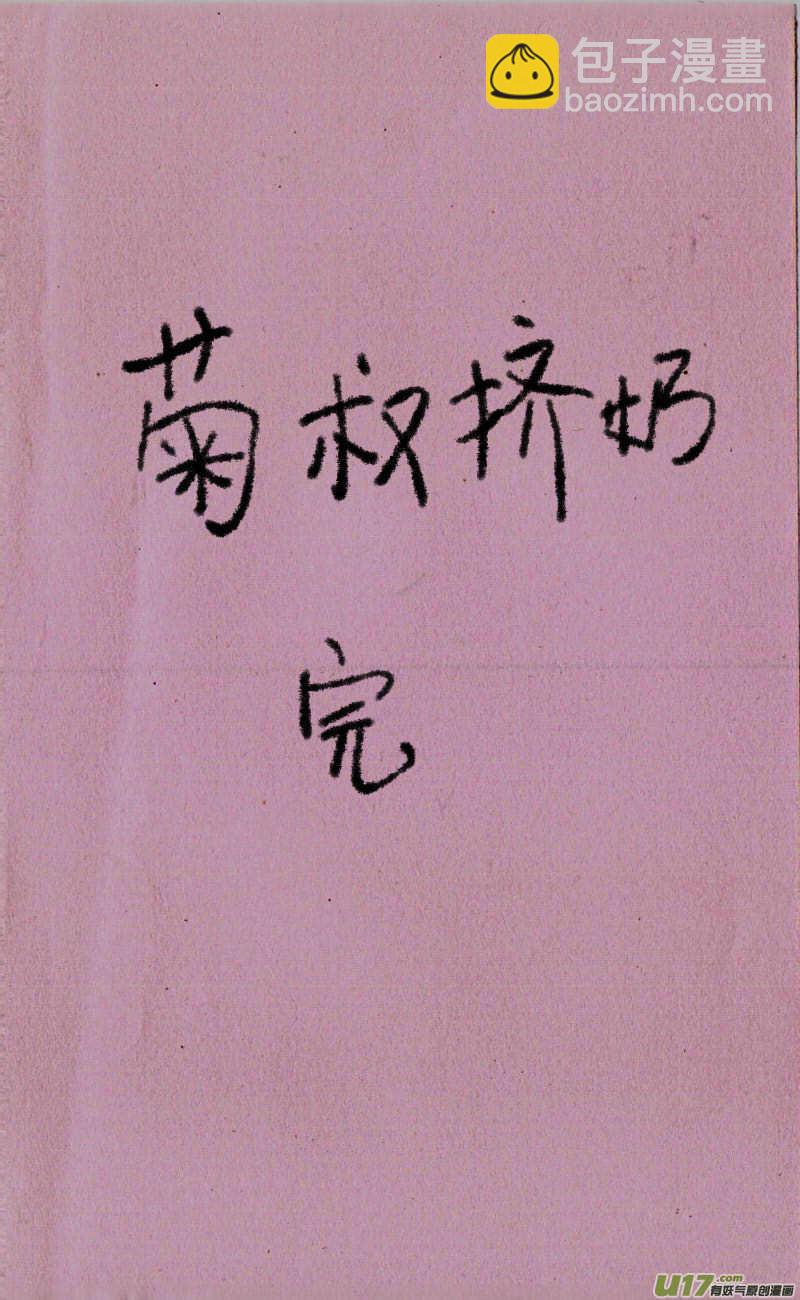 包子漫畫
baozimh.com
菊叔挤奶
完
U17.com
有妖气原创漫画